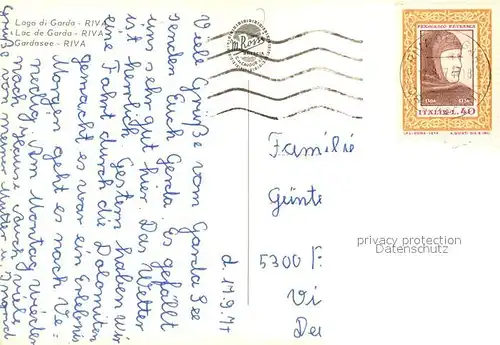 Lago di Garda - RIVA
Lac de Garda - RIVA
Gardasee - RIVA
Viele Grüße vom Garda See
senden Euch Gerda. Es gefällt
uns sehr gut hier. Das Wetter
ist herrlich. Gestern haben wir
eine Fahrt durch die Dolomiten
gemacht es war ein Erlebnis
Morgen geht es nach Ve=
nedig. Am Montag wieder
nach Hause. Auch viele
Grüße von meiner Mutter u.
d. 17.9.
Familie
Günte
5300
Vi
FRANCESCO PETRARCA
ITALIA L. 40
privacy protection
Datenschutz